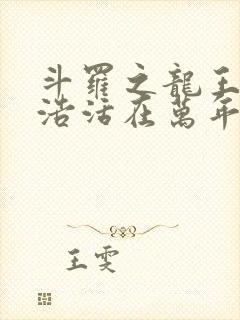 斗羅之龍王
浩活在萬年
王雯